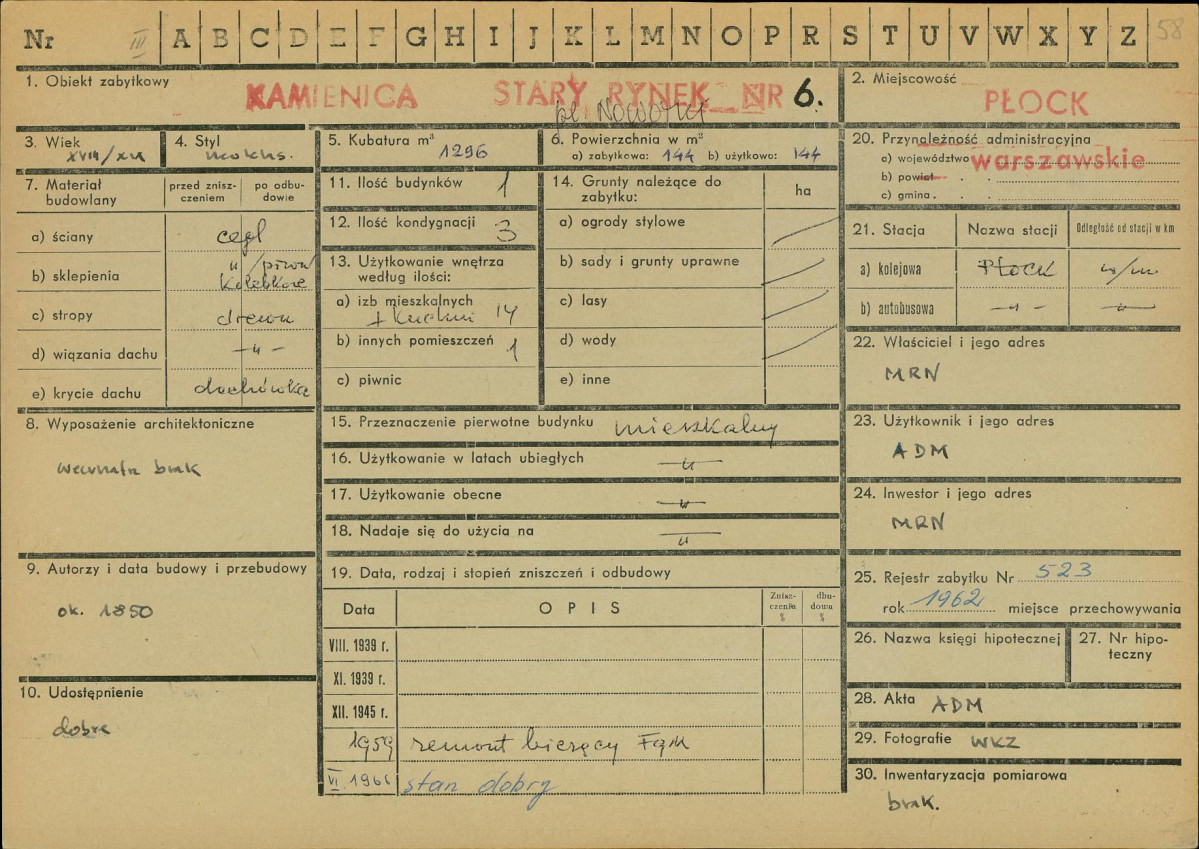 Nr III A B C D E F G H I J K L M N O P R S T U V W X Y Z 58
1. Obiekt zabytkowy
KAMIENICA STARY RYNEK NR 6.
2. Miejscowość
PŁOCK
3. Wiek
XVIII/XIX
4. Styl
5. Kubatura m³ 1296
6. Powierzchnia w m²
a) zabytkowa: 144 b) użytkowa: 144
7. Materiał budowlany
przed zniszczeniem
po odbudowie
a) ściany cegł
b) sklepienia " /piwn/
kolebkowe
c) stropy drewn
d) wiązania dachu —"—
e) krycie dachu dachówka
8. Wyposażenie architektoniczne
wewnątrz brak
9. Autorzy i data budowy i przebudowy
ok. 1850
10. Udostępnienie
dobre
11. Ilość budynków 1
12. Ilość kondygnacji 3
13. Użytkowanie wnętrza
według ilości:
a) izb mieszkalnych
+ kuchni 14
b) innych pomieszczeń 1
c) piwnic
14. Grunty należące do
zabytku:
ha
a) ogrody stylowe
b) sady i grunty uprawne
c) lasy
d) wody
e) inne
15. Przeznaczenie pierwotne budynku mieszkalny
16. Użytkowanie w latach ubiegłych —"—
17. Użytkowanie obecne —"—
18. Nadaje się do użycia na —"—
19. Data, rodzaj i stopień zniszczeń i odbudowy
Data OPIS Zniszczenia % dbudowa %
VIII. 1939 r.
XI. 1939 r.
XII. 1945 r.
1959 remont bieżący FGM
VI. 1966 stan dobry
20. Przynależność administracyjna
a) województwo warszawskie
b) powiat . .
c) gmina . . .
21. Stacja Nazwa stacji Odległość od stacji w km
a) kolejowa PŁOCK
b) autobusowa —"— —"—
22. Właściciel i jego adres
MRN
23. Użytkownik i jego adres
ADM
24. Inwestor i jego adres
MRN
25. Rejestr zabytku Nr 523
rok 1962 miejsce przechowywania
26. Nazwa księgi hipotecznej
27. Nr hipoteczny
28. Akta ADM
29. Fotografie WKZ
30. Inwentaryzacja pomiarowa
brak.